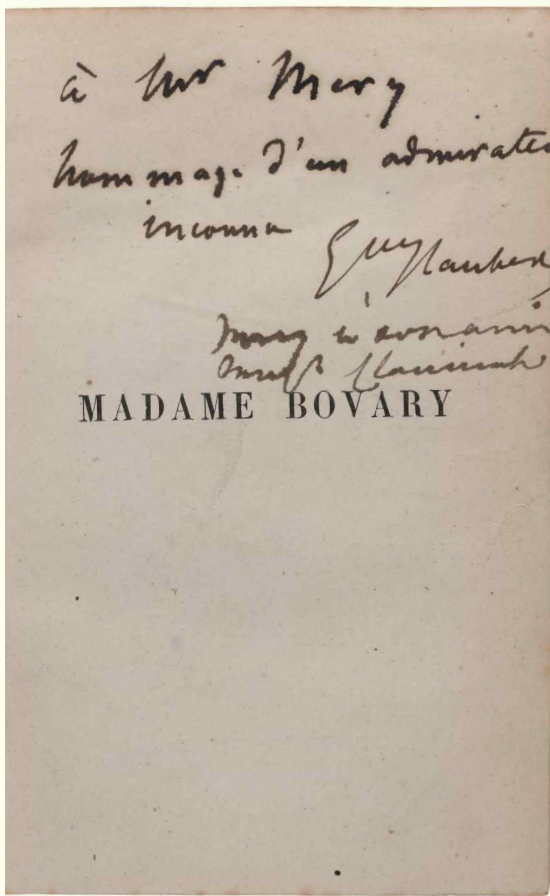 à Mr Mery
hommage d'un admirateu
inconnu
Gve Flaubert
Mery à son ami
MADAME BOVARY